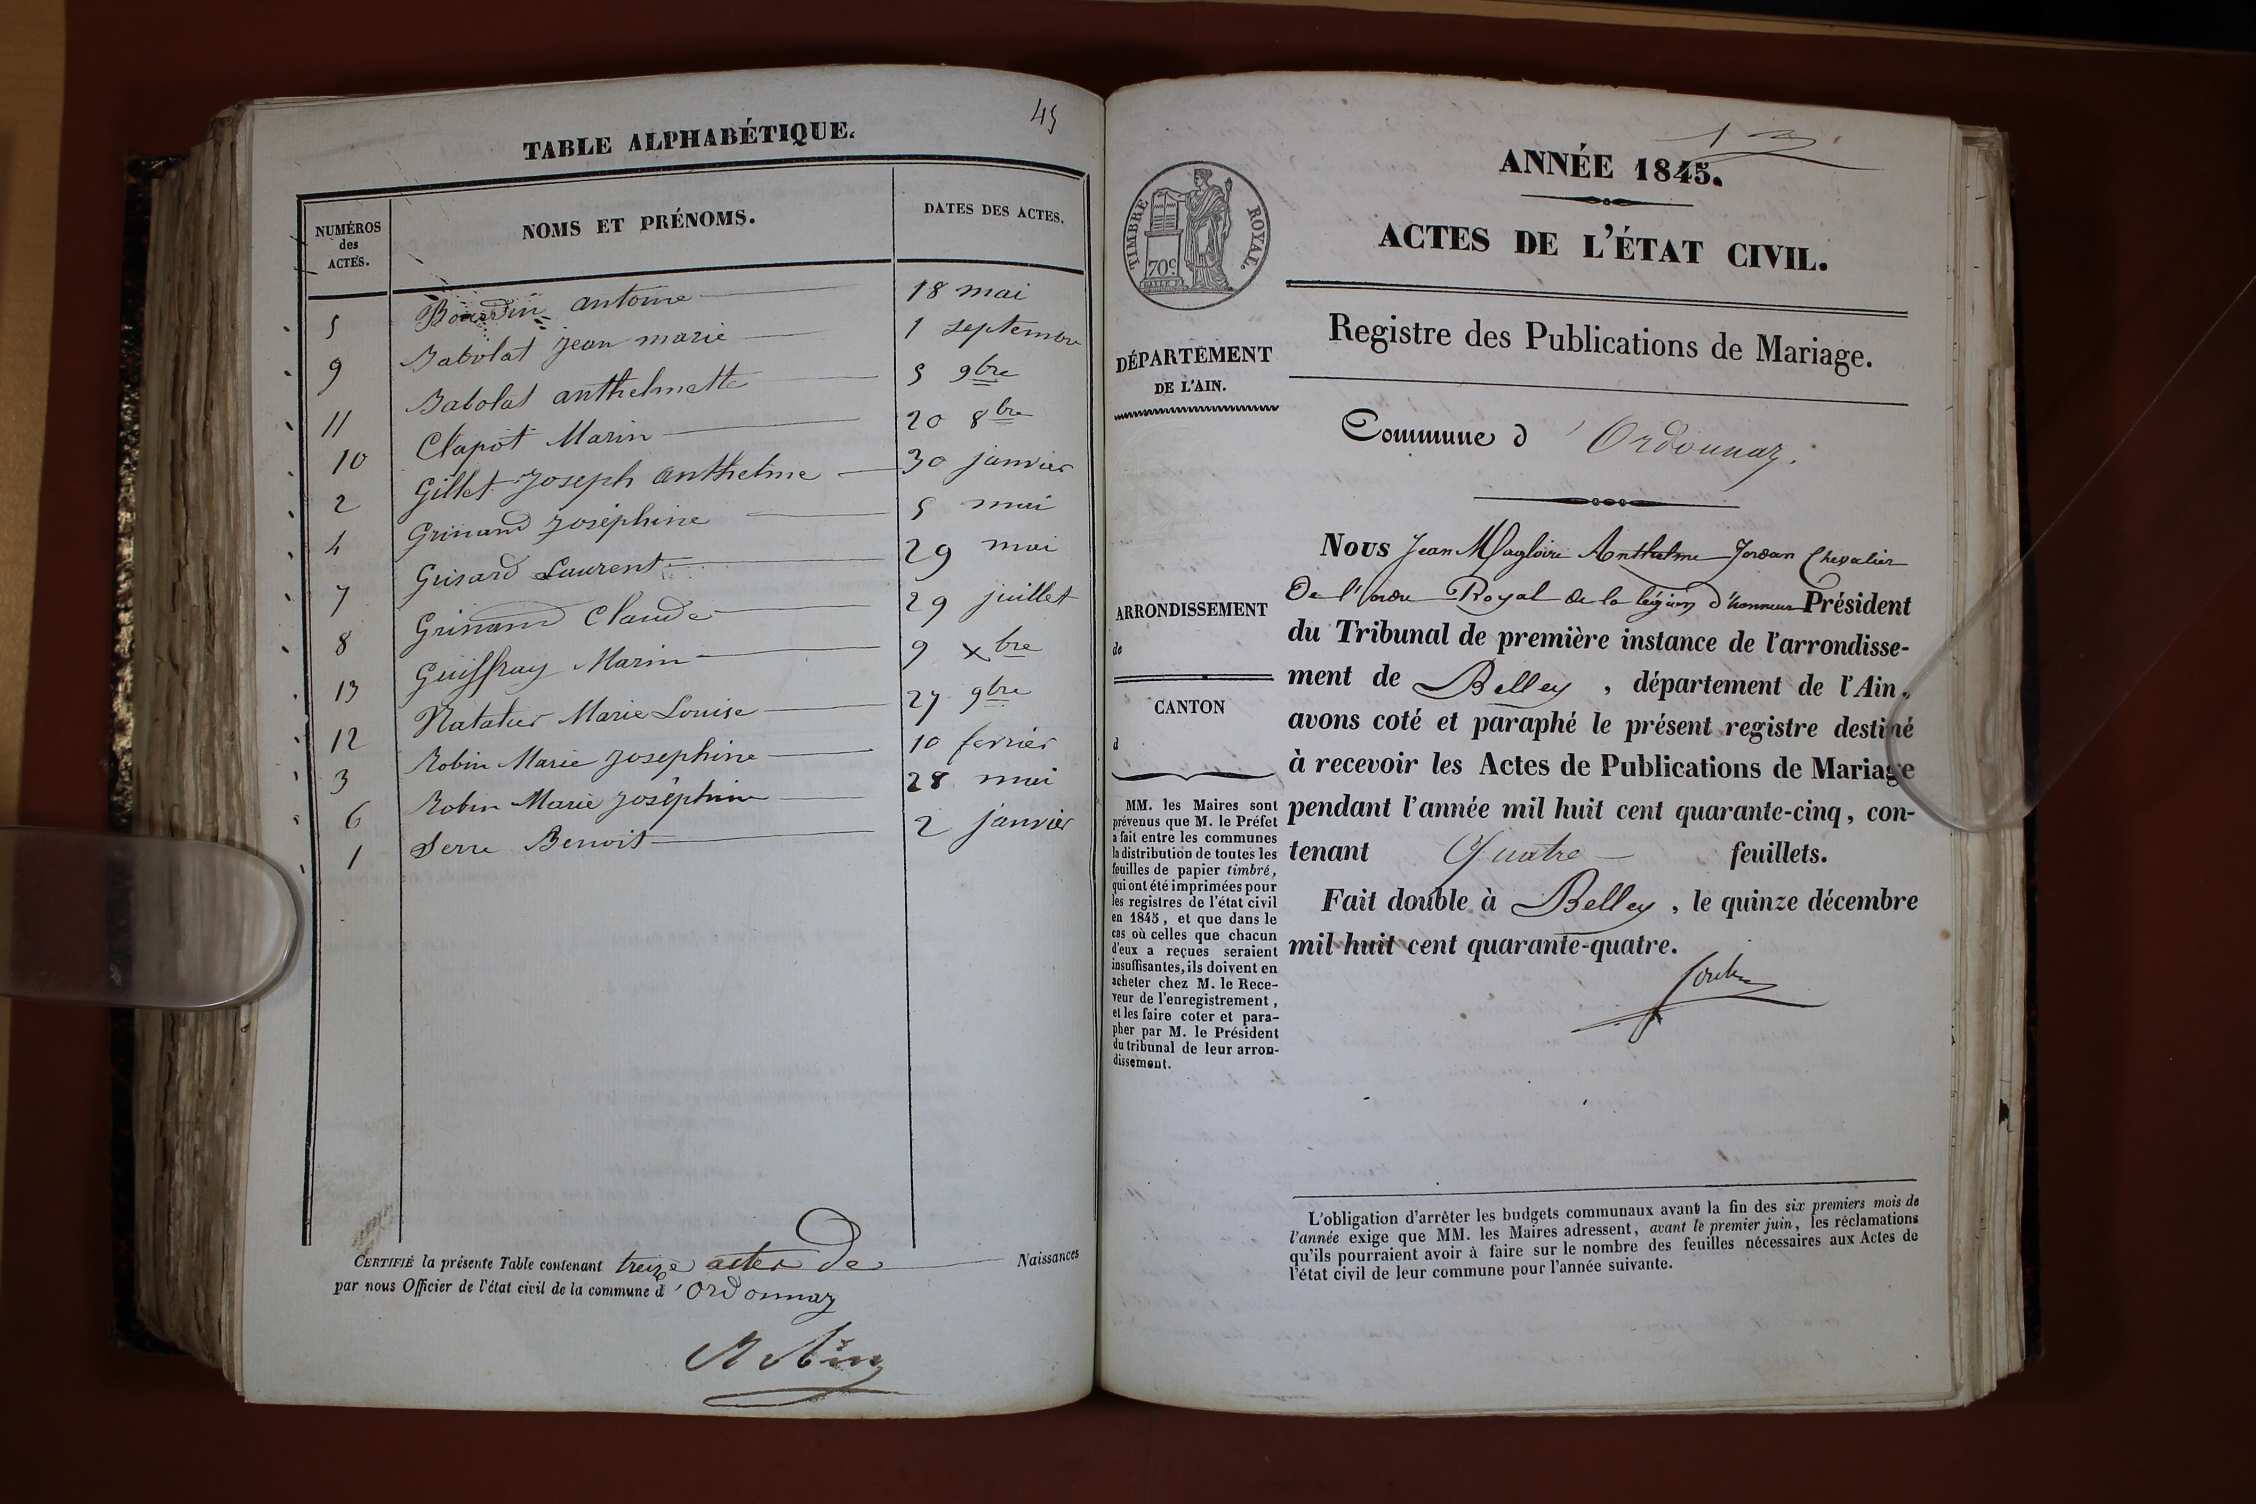 45
TABLE ALPHABÉTIQUE.
NUMÉROS des ACTES. NOMS ET PRÉNOMS. DATES DES ACTES.
5 Bourdin antoine 18 mai
9 Babolat jean marie 1 septembre
11 Babolat anthelmette 5 9bre
10 Clapot Marin 20 8bre
2 Gillet Joseph anthelme 30 janvier
4 Grinand Joséphine 5 mai
7 Guisard Laurent 29 mai
8 Grinand Claude 29 juillet
13 Guiffray Marin 9 xbre
12 Natalier Marie Louise 27 9bre
3 Robin Marie Josephine 10 fevrier
6 Robin Marie Joséphine 28 mai
1 Serre Benoit 2 janvier
CERTIFIÉ la présente Table contenant treize actes de Naissances
par nous Officier de l'état civil de la commune d'Ordonnaz
Robin
TIMBRE ROYAL.
70c
DÉPARTEMENT
DE L'AIN.
ARRONDISSEMENT
de
CANTON
d
MM. les Maires sont
prévenus que M. le Préfet
a fait entre les communes
la distribution de toutes les
feuilles de papier timbré,
qui ont été imprimées pour
les registres de l'état civil
en 1845, et que dans le
cas où celles que chacun
d'eux a reçues seraient
insuffisantes, ils doivent en
acheter chez M. le Rece-
veur de l'enregistrement,
et les faire coter et para-
pher par M. le Président
du tribunal de leur arron-
dissement.
ANNÉE 1845.
ACTES DE L'ÉTAT CIVIL.
Registre des Publications de Mariage.
Commune d'Ordonnaz.
Nous Jean Magloire Anthelme Jordan Chevalier
De l'ordre Royal de la légion d'honneur Président
du Tribunal de première instance de l'arrondisse-
ment de Belley, département de l'Ain,
avons coté et paraphé le présent registre destiné
à recevoir les Actes de Publications de Mariage
pendant l'année mil huit cent quarante-cinq, con-
tenant Quatre feuillets.
Fait double à Belley, le quinze décembre
mil huit cent quarante-quatre.
L'obligation d'arrêter les budgets communaux avant la fin des six premiers mois de
l'année exige que MM. les Maires adressent, avant le premier juin, les réclamations
qu'ils pourraient avoir à faire sur le nombre des feuilles nécessaires aux Actes de
l'état civil de leur commune pour l'année suivante.